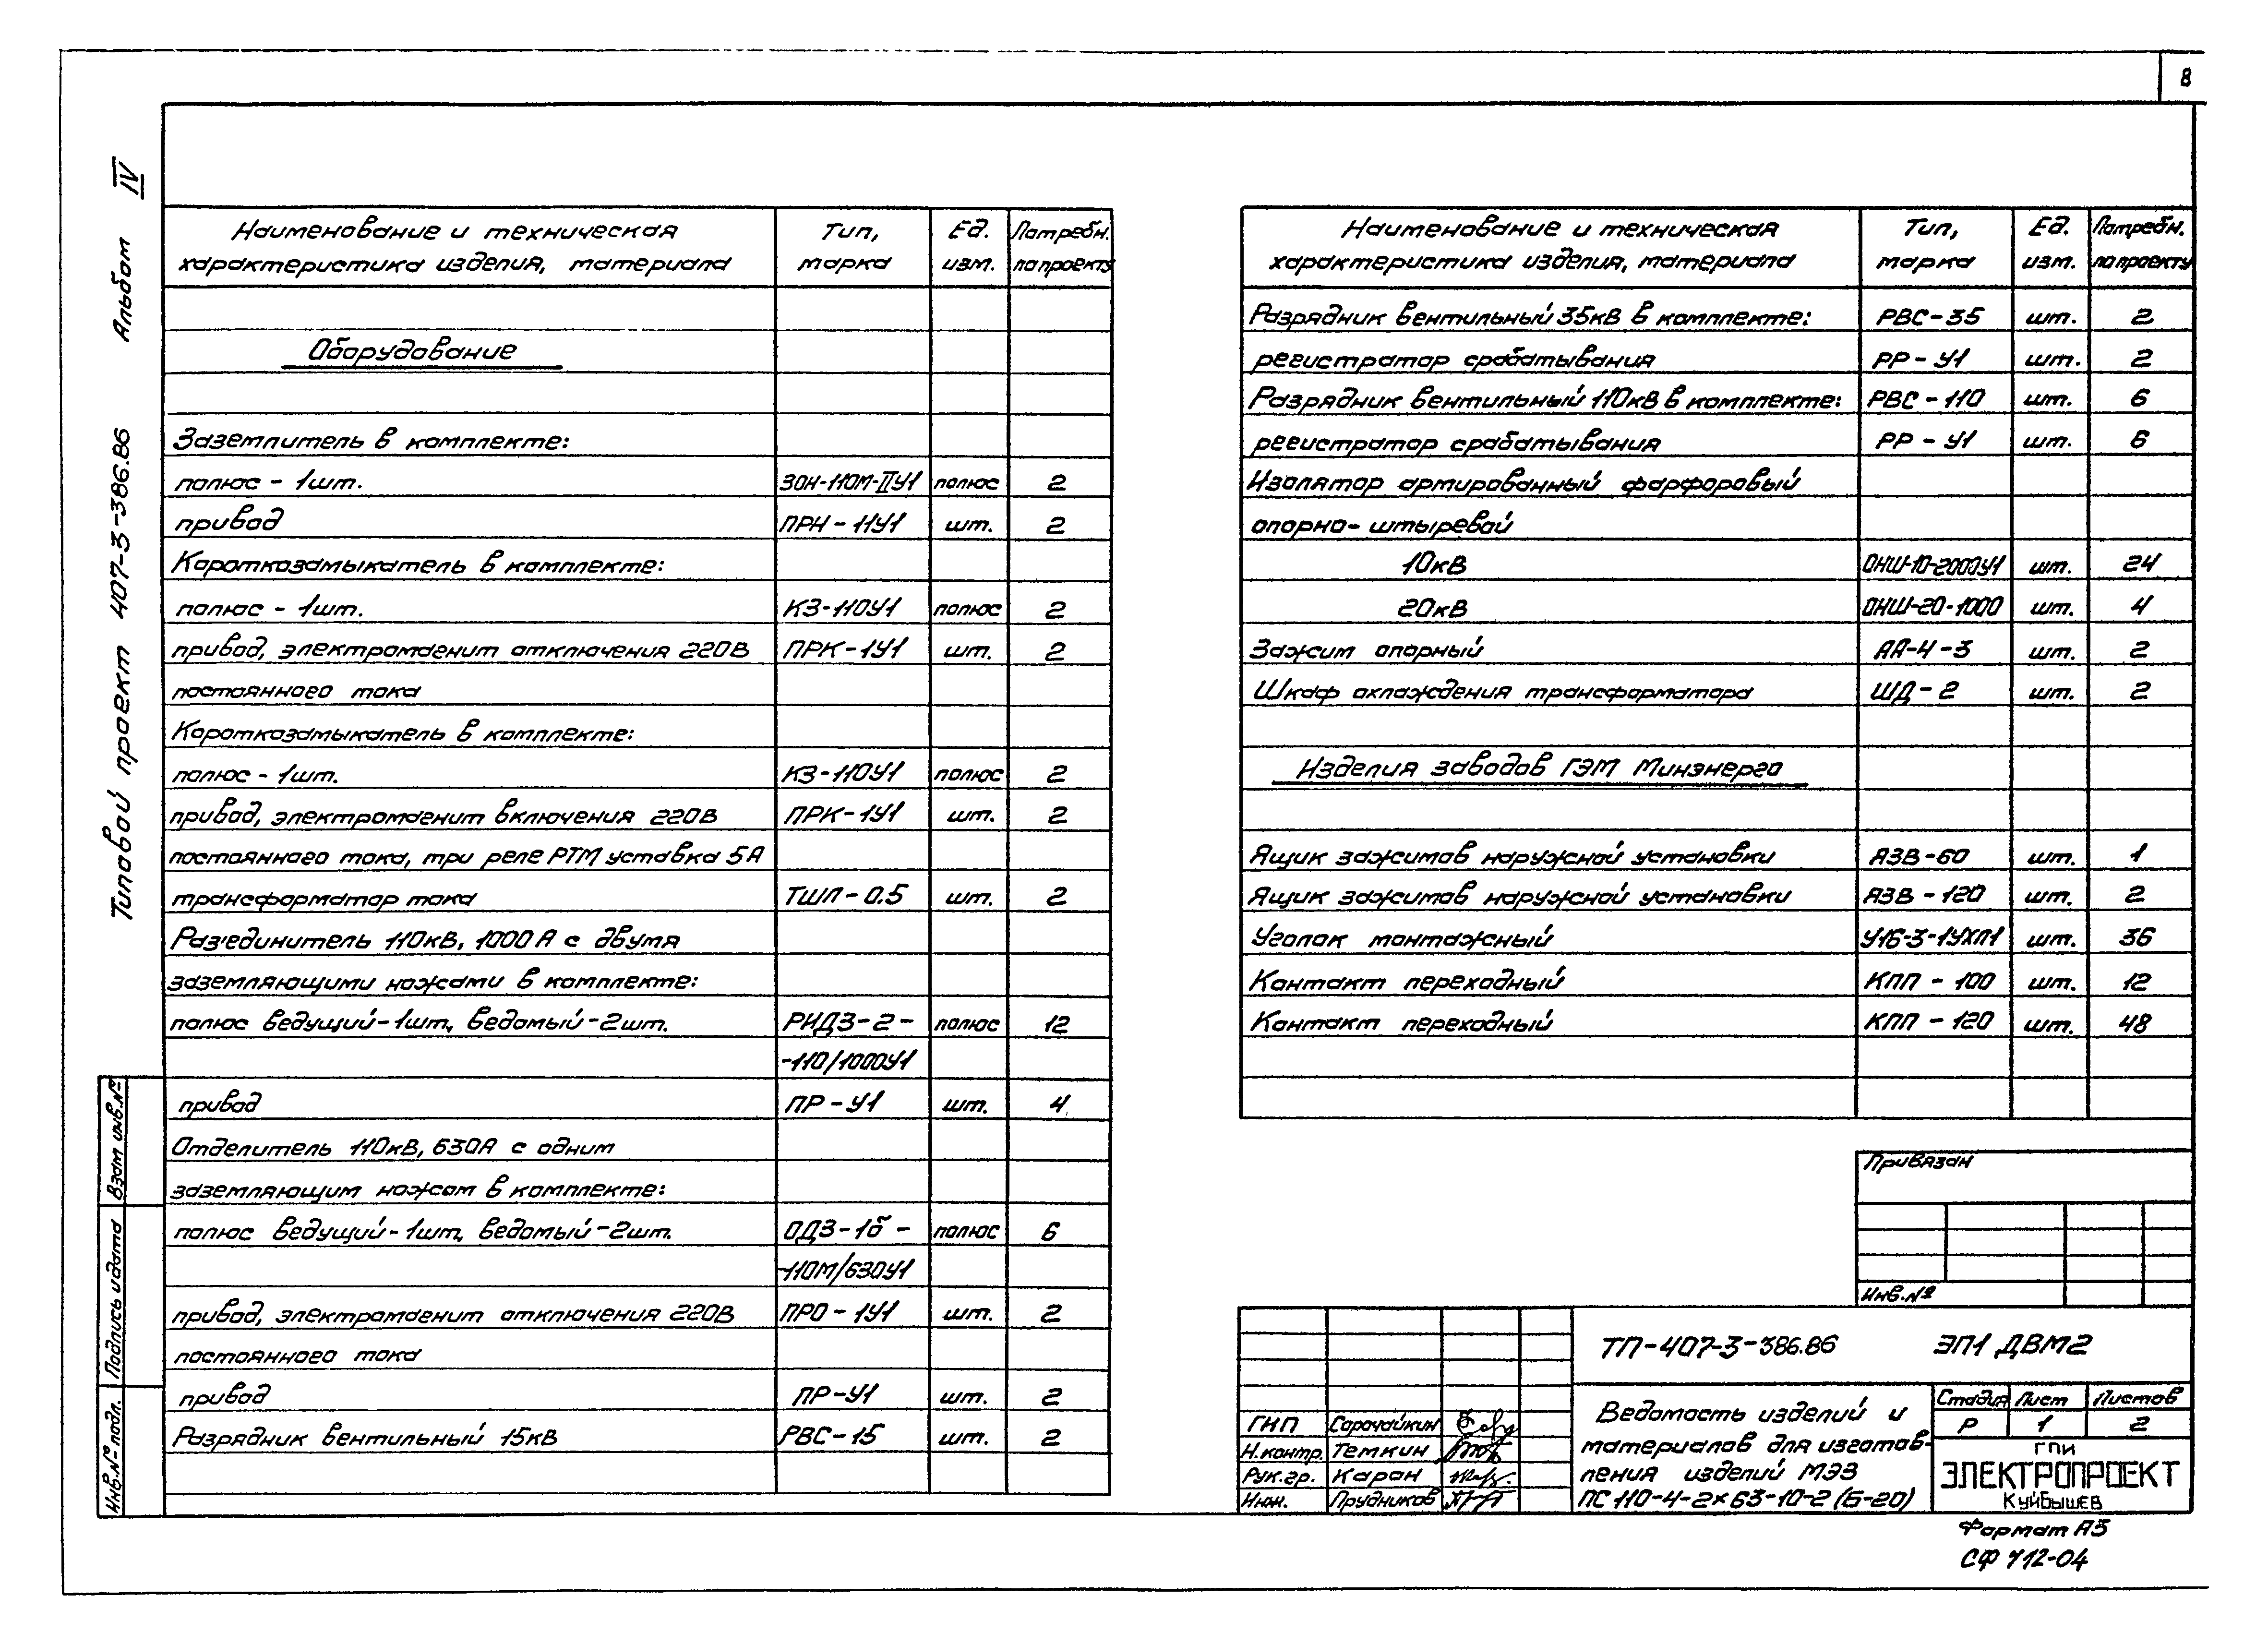 8
Типовой проект 407-3-386.86 Альбом IV
Наименование и техническая характеристика изделия, материала | Тип, марка | Ед. изм. | Потребн. по проекту
Оборудование
Заземлитель в комплекте:
полюс - 1шт. ЗОН-110М-IIУ1 полюс 2
привод ПРН-11У1 шт. 2
Короткозамыкатель в комплекте:
полюс - 1шт. КЗ-110У1 полюс 2
привод, электромагнит отключения 220В ПРК-1У1 шт. 2
постоянного тока
Короткозамыкатель в комплекте:
полюс - 1шт. КЗ-110У1 полюс 2
привод, электромагнит включения 220В ПРК-1У1 шт. 2
постоянного тока, три реле РТМ уставка 5А
трансформатор тока ТШЛ-0.5 шт. 2
Разъединитель 110кВ, 1000А с двумя
заземляющими ножами в комплекте:
полюс ведущий-1шт, ведомый-2шт. РНДЗ-2- полюс 12
-110/1000У1
привод ПР-У1 шт. 4
Отделитель 110кВ, 630А с одним
заземляющим ножом в комплекте:
полюс ведущий-1шт, ведомый-2шт. ОДЗ-1б- полюс 6
-110М/630У1
привод, электромагнит отключения 220В ПРО-1У1 шт. 2
постоянного тока
привод ПР-У1 шт. 2
Разрядник вентильный 15кВ РВС-15 шт. 2
Наименование и техническая характеристика изделия, материала | Тип, марка | Ед. изм. | Потребн. по проекту
Разрядник вентильный 35кВ в комплекте: РВС-35 шт. 2
регистратор срабатывания РР-У1 шт. 2
Разрядник вентильный 110кВ в комплекте: РВС-110 шт. 6
регистратор срабатывания РР-У1 шт. 6
Изолятор армированный фарфоровый
опорно-штыревой
10кВ ОНШ-10-2000У1 шт. 24
20кВ ОНШ-20-1000 шт. 4
Зажим опорный АА-4-3 шт. 2
Шкаф охлаждения трансформатора ШД-2 шт. 2
Изделия заводов ГЭМ Минэнерго
Ящик зажимов наружной установки ЯЗВ-60 шт. 1
Ящик зажимов наружной установки ЯЗВ-120 шт. 2
Уголок монтажный У16-3-1УХЛ1 шт. 36
Контакт переходный КПП-100 шт. 12
Контакт переходный КПП-120 шт. 48
Привязан
Инв.№
ТП-407-3-386.86 ЭП1 ДВМ2
Ведомость изделий и
материалов для изготов-
ления изделий МЭЗ
ПС 110-4-2х63-10-2 (Б-20)
Стадия Лист Листов
Р 1 2
ГПИ
ЭЛЕКТРОПРОЕКТ
Куйбышев
ГИП Сорочайкин
Н.контр. Темкин
Рук.гр. Каран
Инж. Прудников
Взам инв.№
Подпись и дата
Инв.№ подл.
Формат А3
СФ 712-04